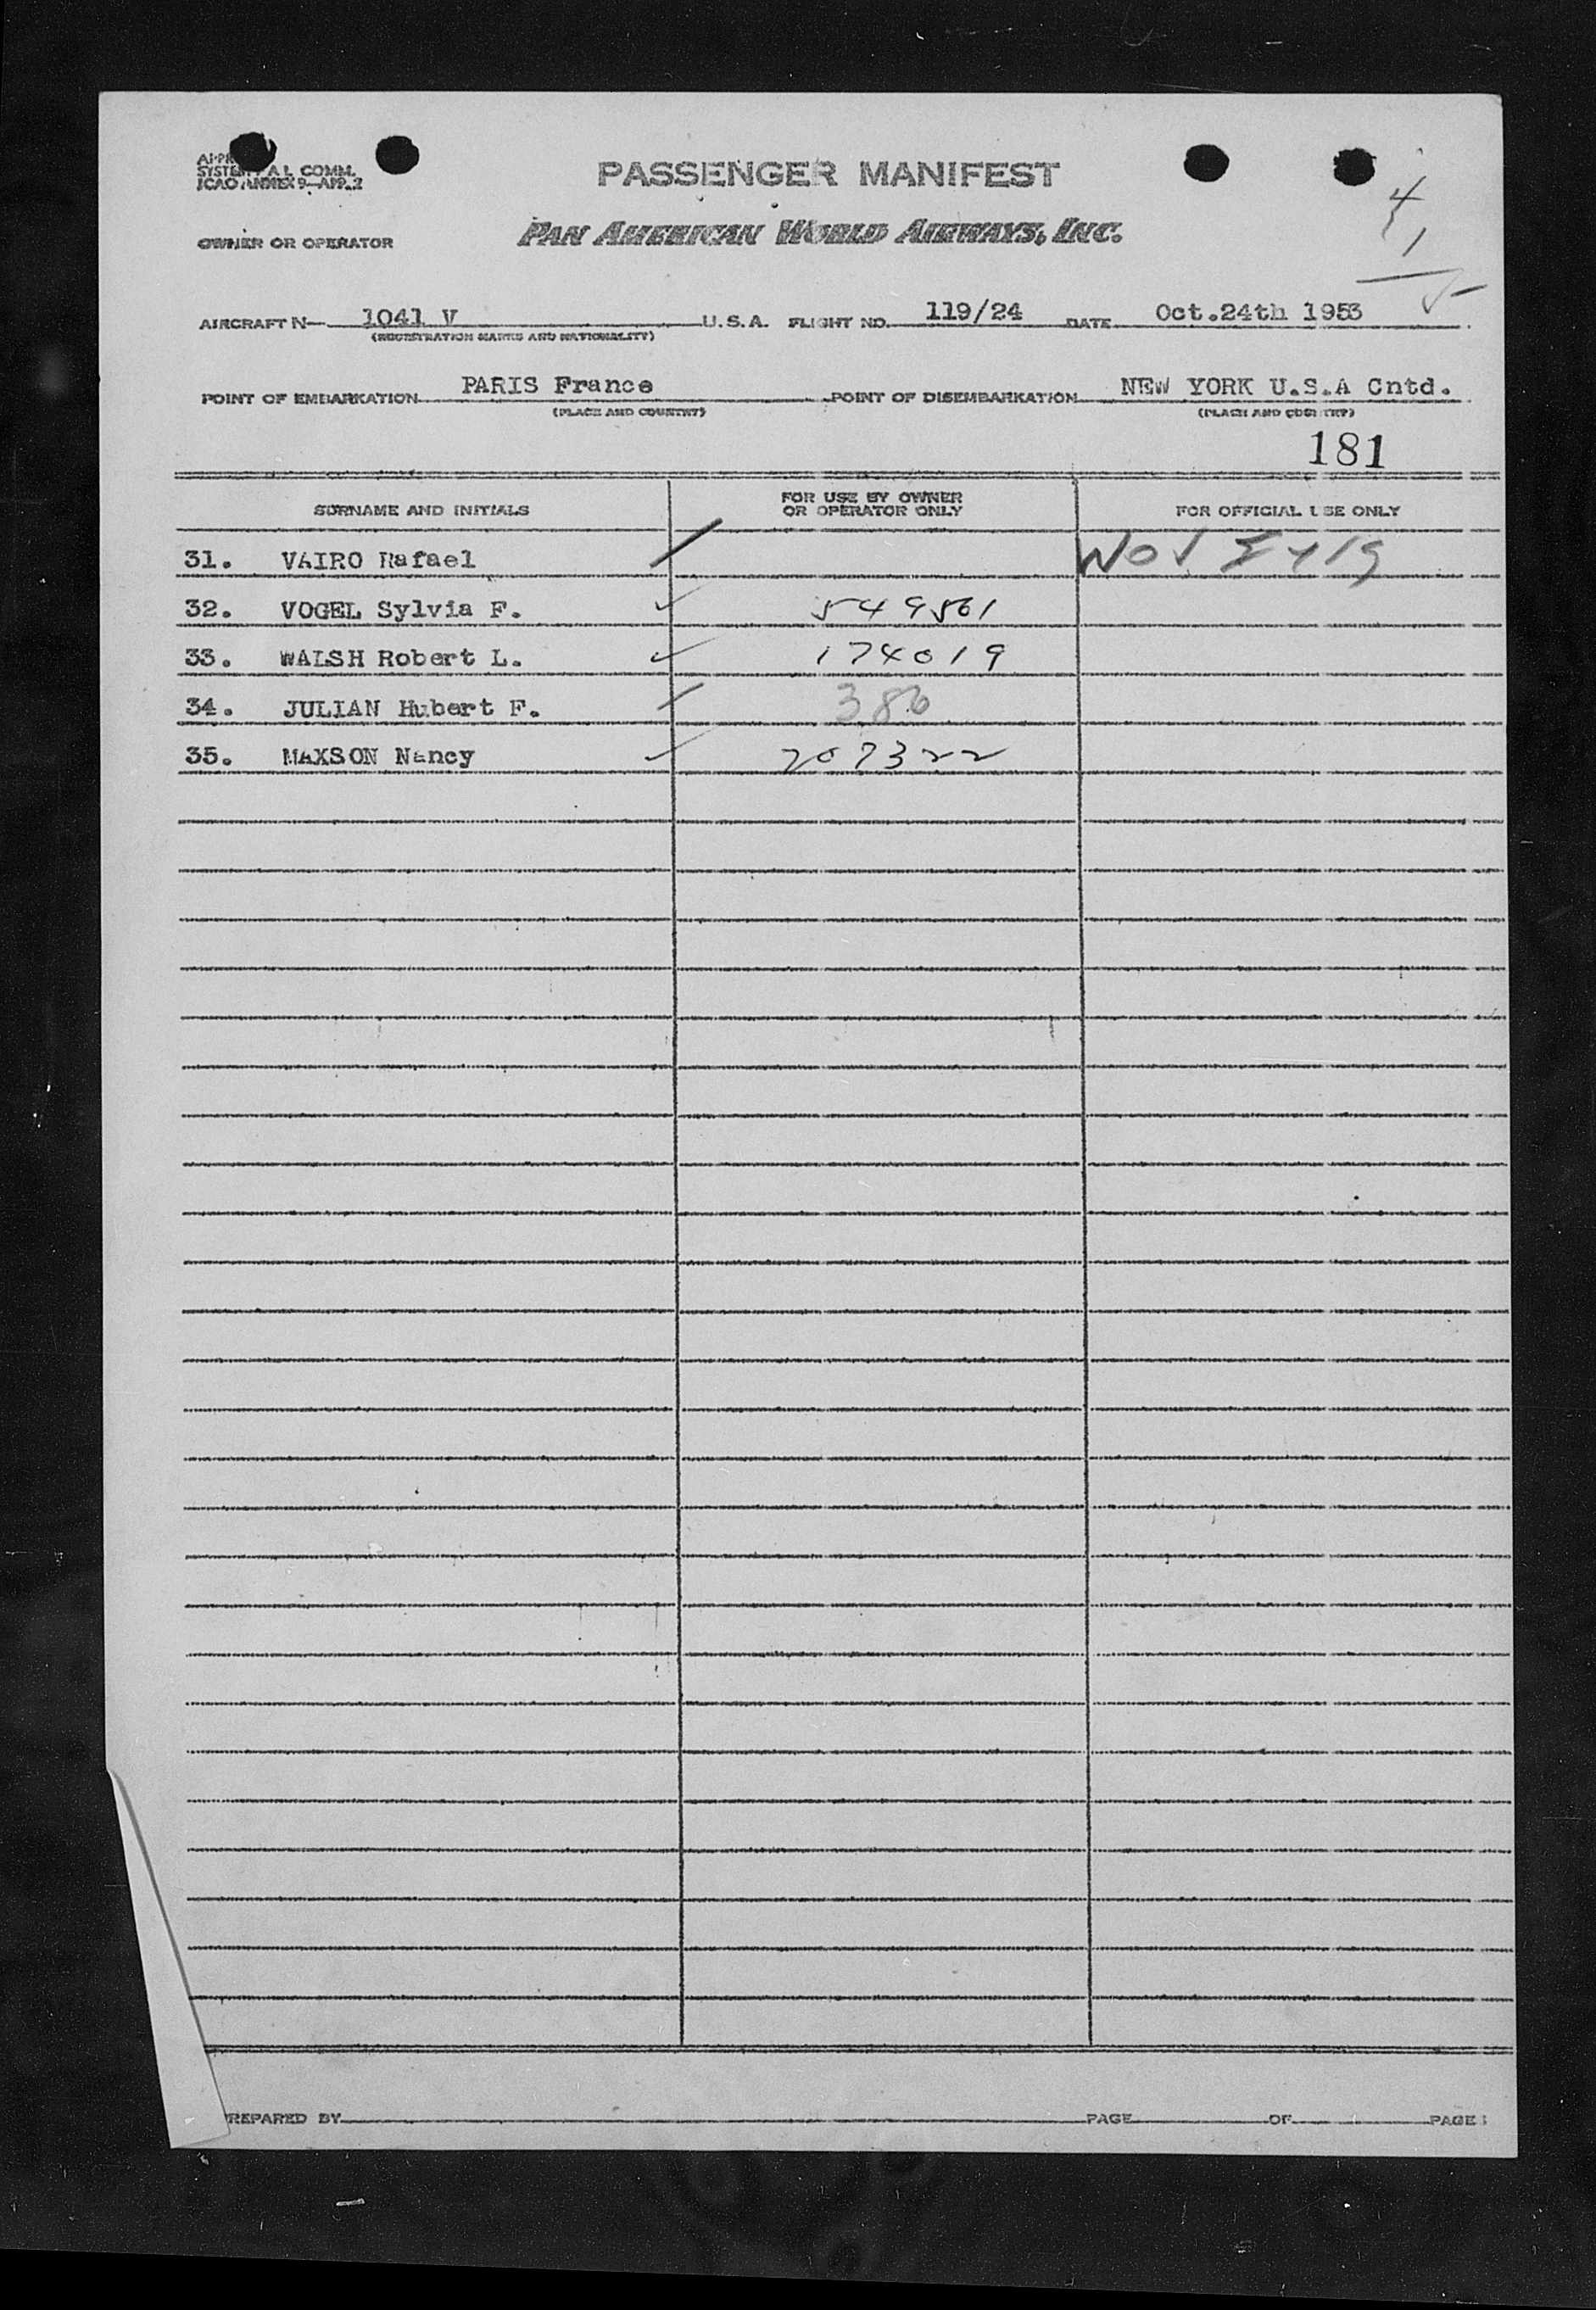 PASSENGER MANIFEST
SYSTEM A L COMM.
ICAO ANNEX 9—APP. 2
OWNER OR OPERATOR
PAN AMERICAN WORLD AIRWAYS, INC.
4
1
AIRCRAFT N— 1041 V U.S.A. FLIGHT NO. 119/24 DATE Oct.24th 1953
(REGISTRATION MARKS AND NATIONALITY)
POINT OF EMBARKATION PARIS France POINT OF DISEMBARKATION NEW YORK U.S.A Cntd.
(PLACE AND COUNTRY) (PLACE AND COUNTRY)
181
SURNAME AND INITIALS FOR USE BY OWNER OR OPERATOR ONLY FOR OFFICIAL USE ONLY
31. VAIRO Rafael
32. VOGEL Sylvia F. 549561
33. WALSH Robert L. 174019
34. JULIAN Hubert F. 386
35. MAXSON Nancy 207322
REPARED BY PAGE OF PAGE